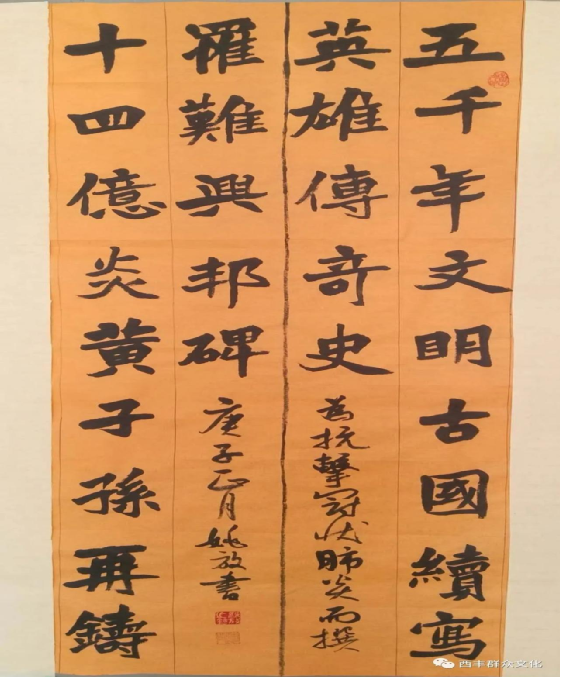 五千年文明古國續寫
英雄傳奇史
為抗擊冠狀肺炎而撰
十四億炎黃子孫再鑄
罹難興邦碑
庚子正月姚放書
西丰群众文化